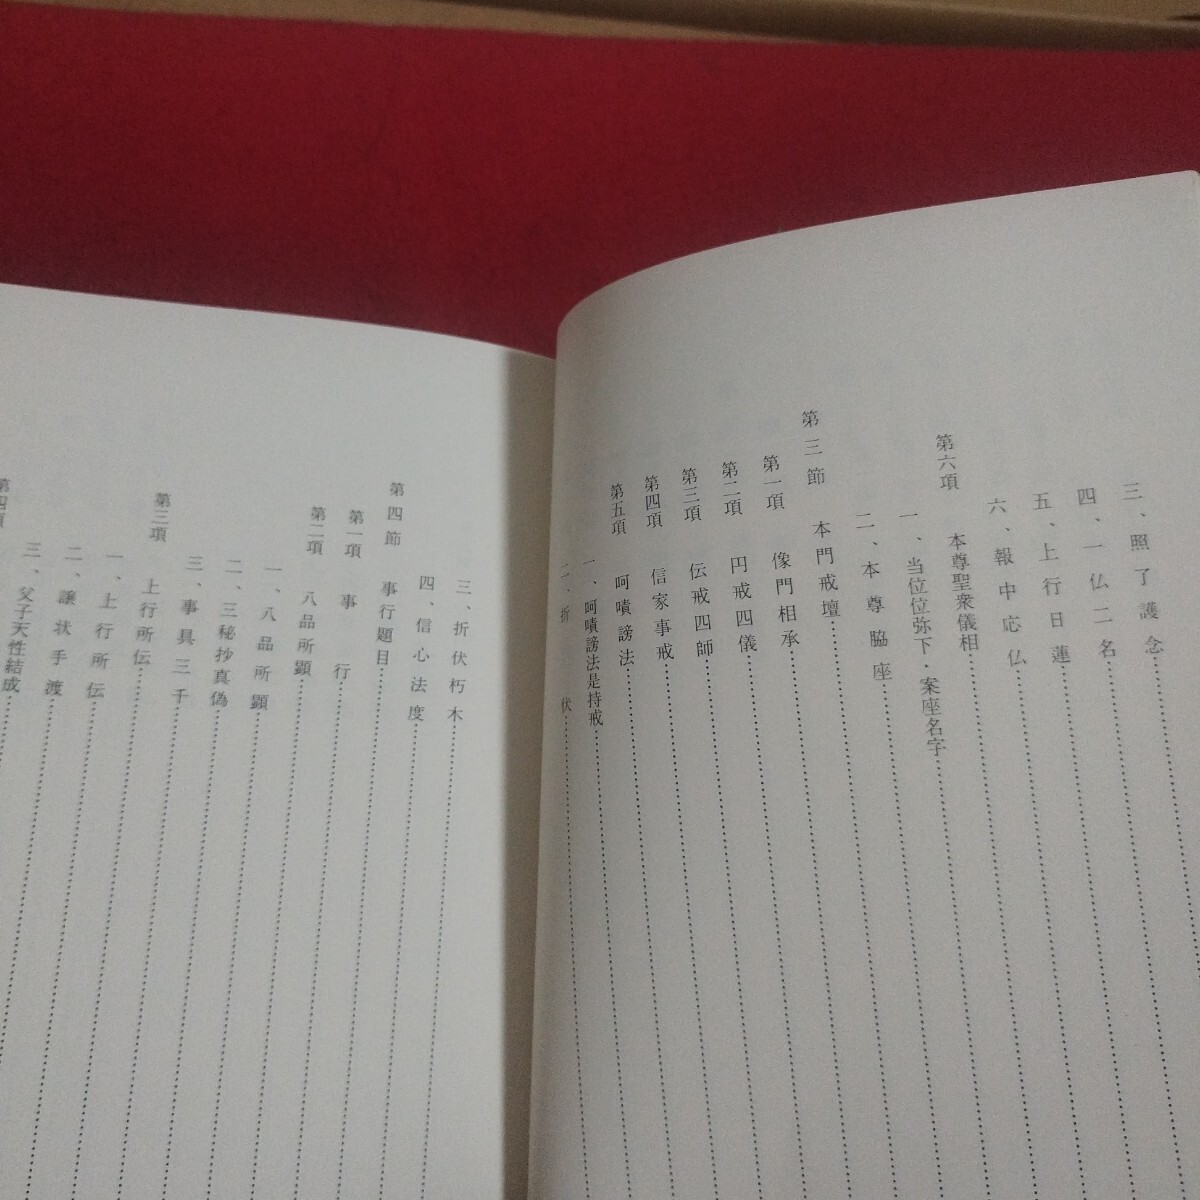 三、照了護念
四、一仏二名
五、上行日蓮
六、報中応仏
第六項 本尊聖衆儀相
一、当位位弥下・案座名字
二、本尊脇座
第三節 本門戒壇
第一項 像門相承
第二項 円戒四儀
第三項 伝戒四師
第四項 信家事戒
第五項 呵嘖謗法
一、呵嘖謗法是持戒
二、折伏
三、折伏朽木
四、信心法度
第四節 事行題目
第一項 事行
第二項 八品所顕
一、八品所顕
二、三秘抄真偽
三、事具三千
第三項 上行所伝
一、上行所伝
二、譲状手渡
三、父子天性結成
第四項